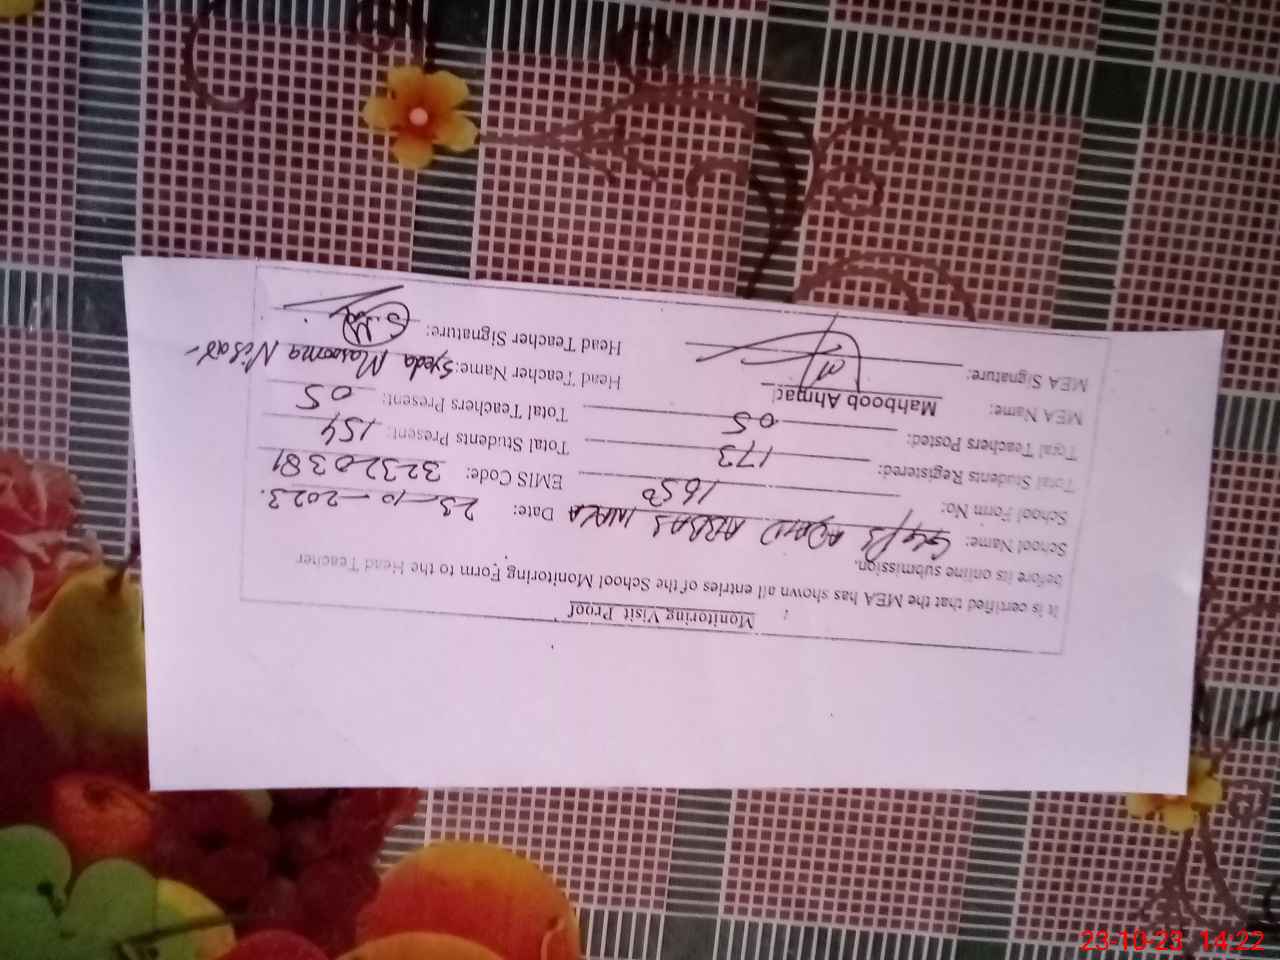 Monitoring Visit Proof
It is certified that the MEA has shown all entries of the School Monitoring Form to the Head Teacher
before its online submission.
School Name: GGPS ABBAS Date: 23-10-2023.
School Form No: 1650 EMIS Code: 32320381
Total Students Registered: 173 Total Students Present: 154
Total Teachers Posted: 05 Total Teachers Present: 05
MEA Name: Mahboob Ahmad Head Teacher Name: Syeda Masooma Nisar
MEA Signature: Head Teacher Signature:
23-10-23 14:22